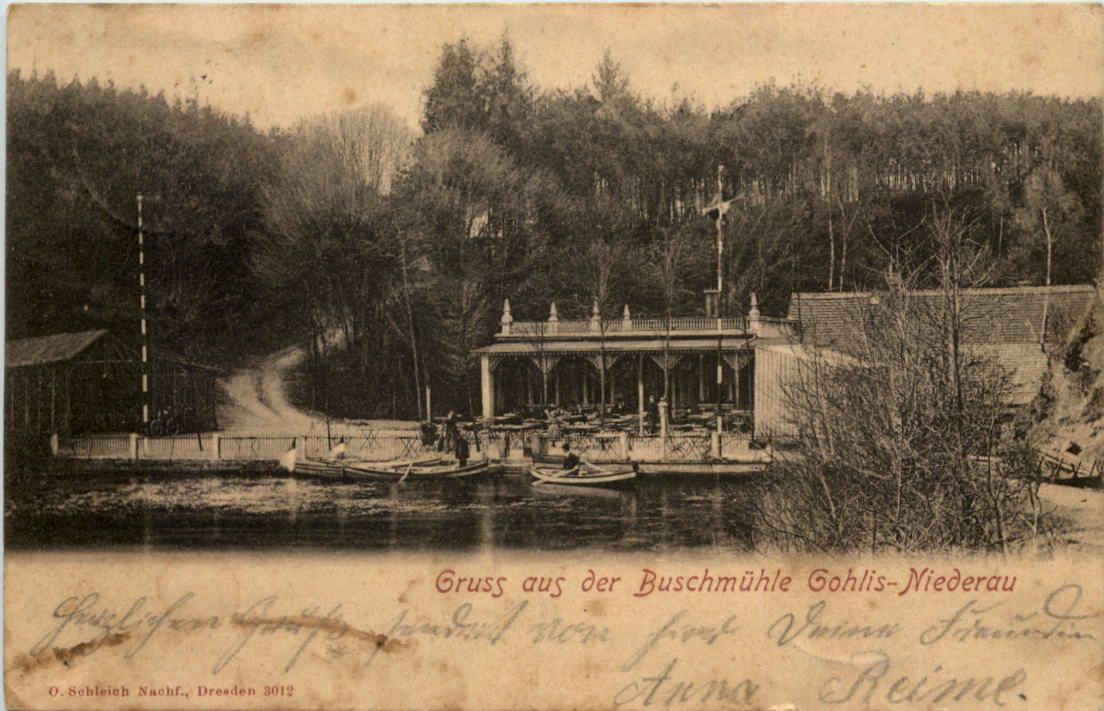 Gruss aus der Buschmühle Gohlis-Niederau
Herzlichen Gruß sendet von hier Deine Freundin
Anna Reime.
O. Schleich Nachf., Dresden 3012